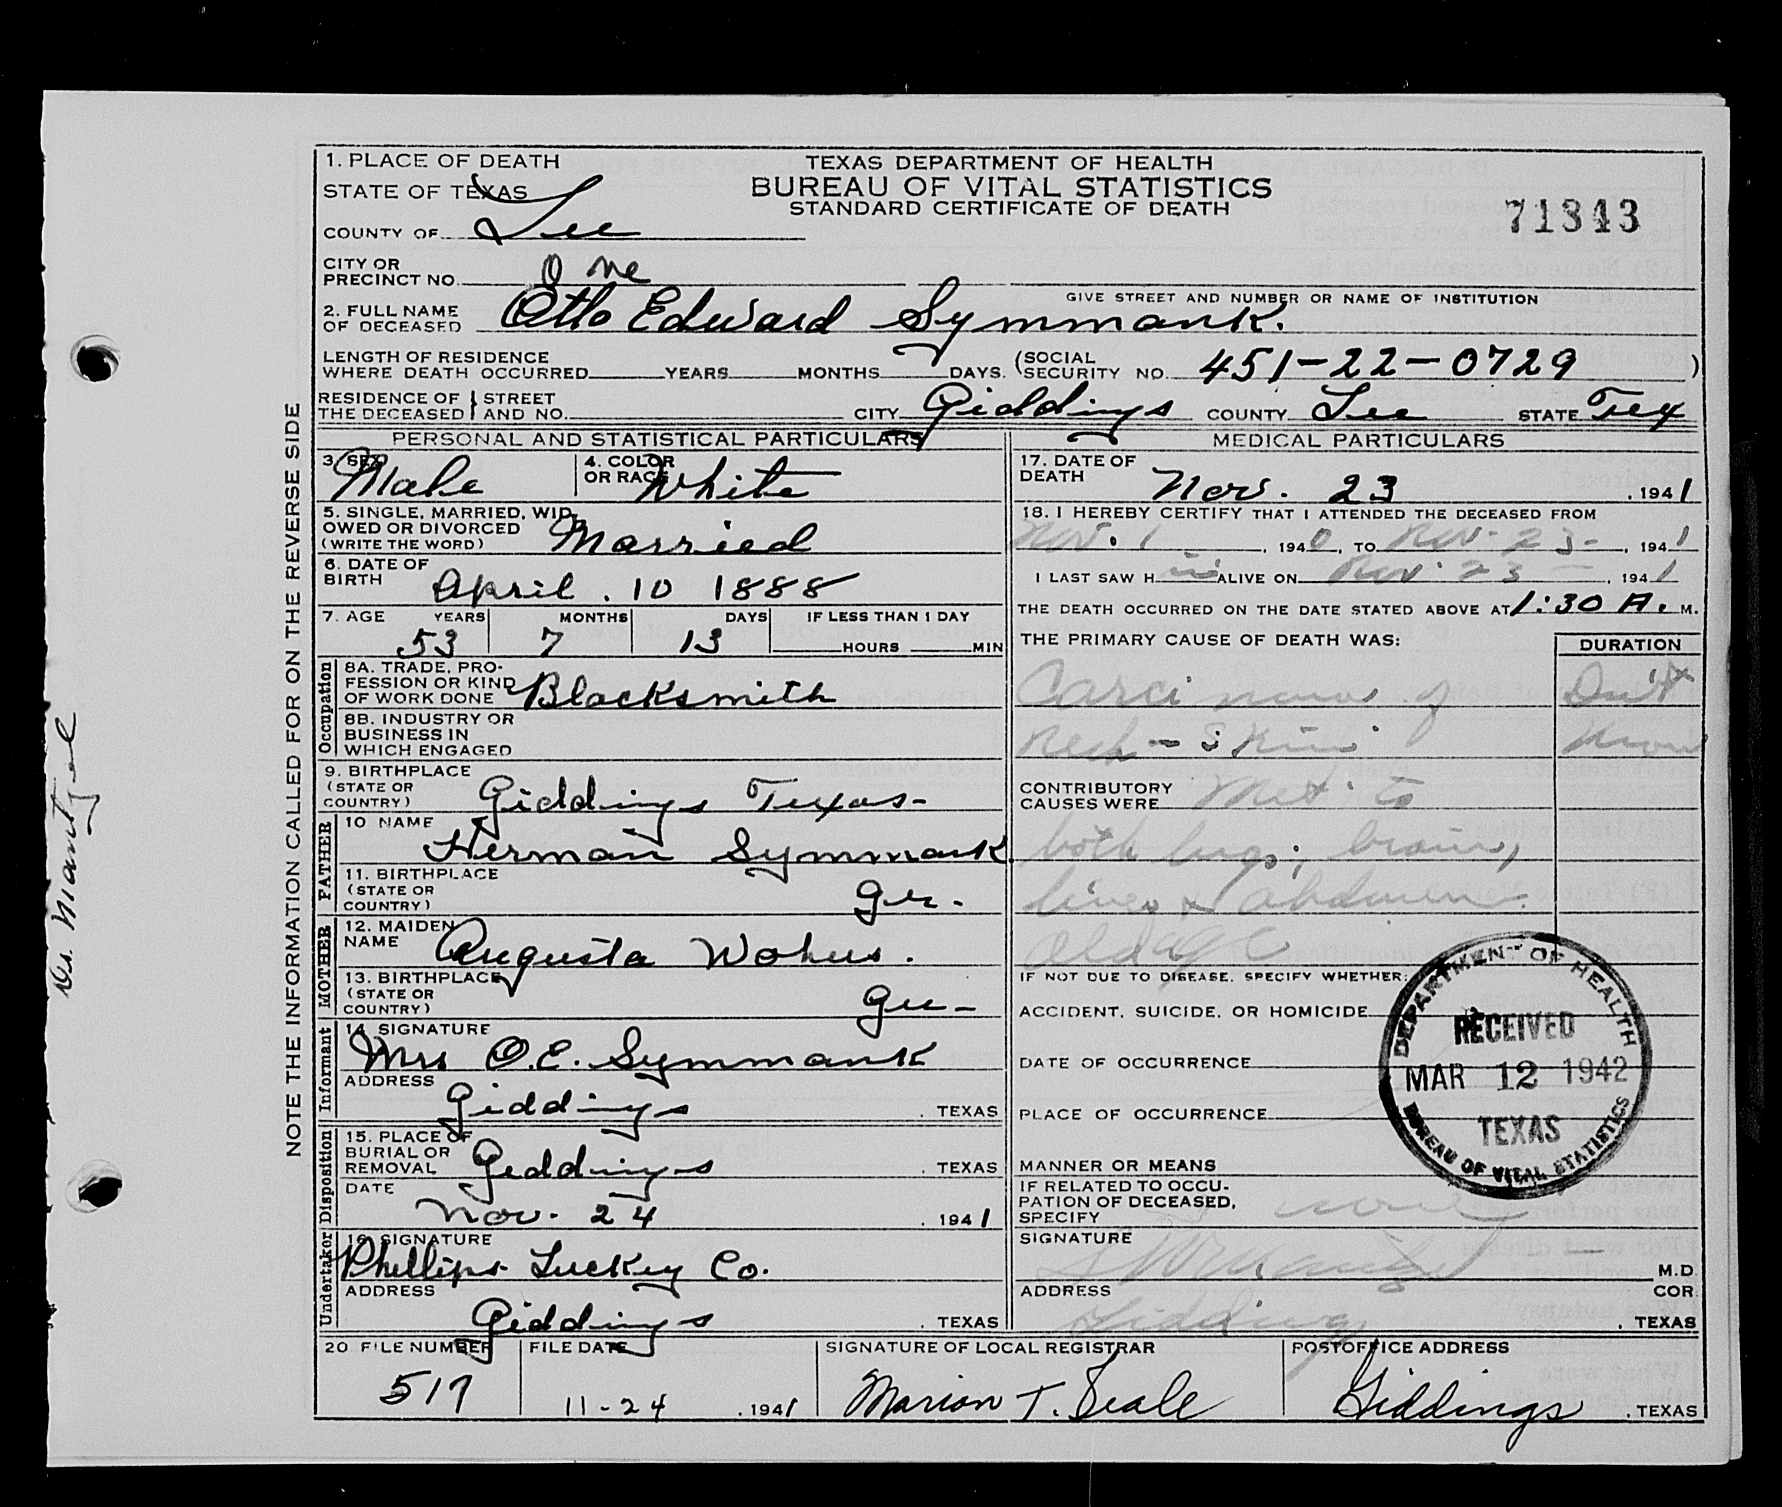 1. PLACE OF DEATH
STATE OF TEXAS
COUNTY OF Lee
TEXAS DEPARTMENT OF HEALTH
BUREAU OF VITAL STATISTICS
STANDARD CERTIFICATE OF DEATH
71343
CITY OR
PRECINCT NO. One
GIVE STREET AND NUMBER OR NAME OF INSTITUTION
2. FULL NAME
OF DECEASED Otto Edward Symmank.
LENGTH OF RESIDENCE
WHERE DEATH OCCURRED YEARS MONTHS DAYS. (SOCIAL
SECURITY NO. 451-22-0729 )
RESIDENCE OF } STREET
THE DECEASED } AND NO. CITY Giddings COUNTY Lee STATE Tex
PERSONAL AND STATISTICAL PARTICULARS
3. SEX Male
4. COLOR
OR RACE White
5. SINGLE, MARRIED, WID-
OWED OR DIVORCED
(WRITE THE WORD) Married
6. DATE OF
BIRTH April. 10 1888
7. AGE YEARS MONTHS DAYS IF LESS THAN 1 DAY
53 7 13 HOURS MIN
Occupation
8A. TRADE, PRO-
FESSION OR KIND
OF WORK DONE Blacksmith
8B. INDUSTRY OR
BUSINESS IN
WHICH ENGAGED
9. BIRTHPLACE
(STATE OR
COUNTRY) Giddings Texas-
FATHER
10 NAME
Herman Symmank
11. BIRTHPLACE
(STATE OR
COUNTRY) Ger.
MOTHER
12. MAIDEN
NAME Augusta
13. BIRTHPLACE
(STATE OR
COUNTRY) Ger-
Informant
14. SIGNATURE
Mrs O.E. Symmank
ADDRESS
Giddings . TEXAS
Disposition
15. PLACE OF
BURIAL OR
REMOVAL Giddings . TEXAS
DATE
Nov. 24 . 1941
Undertaker
16. SIGNATURE
Phillips Luckey Co.
ADDRESS
Giddings . TEXAS
MEDICAL PARTICULARS
17. DATE OF
DEATH Nov. 23 . 1941
18. I HEREBY CERTIFY THAT I ATTENDED THE DECEASED FROM
Nov. 1 , 1940, TO Nov. 23- , 1941
I LAST SAW H im ALIVE ON Nov. 23 - , 1941
THE DEATH OCCURRED ON THE DATE STATED ABOVE AT 1:30 A. M.
THE PRIMARY CAUSE OF DEATH WAS:
DURATION
Carcinoma of
neck - Skin
Don't
know
CONTRIBUTORY
CAUSES WERE Met. to
both lungs, brain,
liver & abdomen.
old age
IF NOT DUE TO DISEASE, SPECIFY WHETHER:
ACCIDENT, SUICIDE, OR HOMICIDE
DATE OF OCCURRENCE
PLACE OF OCCURRENCE
MANNER OR MEANS
IF RELATED TO OCCU-
PATION OF DECEASED,
SPECIFY
SIGNATURE
M.D.
ADDRESS COR.
Giddings . TEXAS
DEPARTMENT OF HEALTH
RECEIVED
MAR 12 1942
TEXAS
BUREAU OF VITAL STATISTICS
20 FILE NUMBER
517
FILE DATE
11-24 . 1941
SIGNATURE OF LOCAL REGISTRAR
Marion T. Seale
POSTOFFICE ADDRESS
Giddings . TEXAS
NOTE THE INFORMATION CALLED FOR ON THE REVERSE SIDE